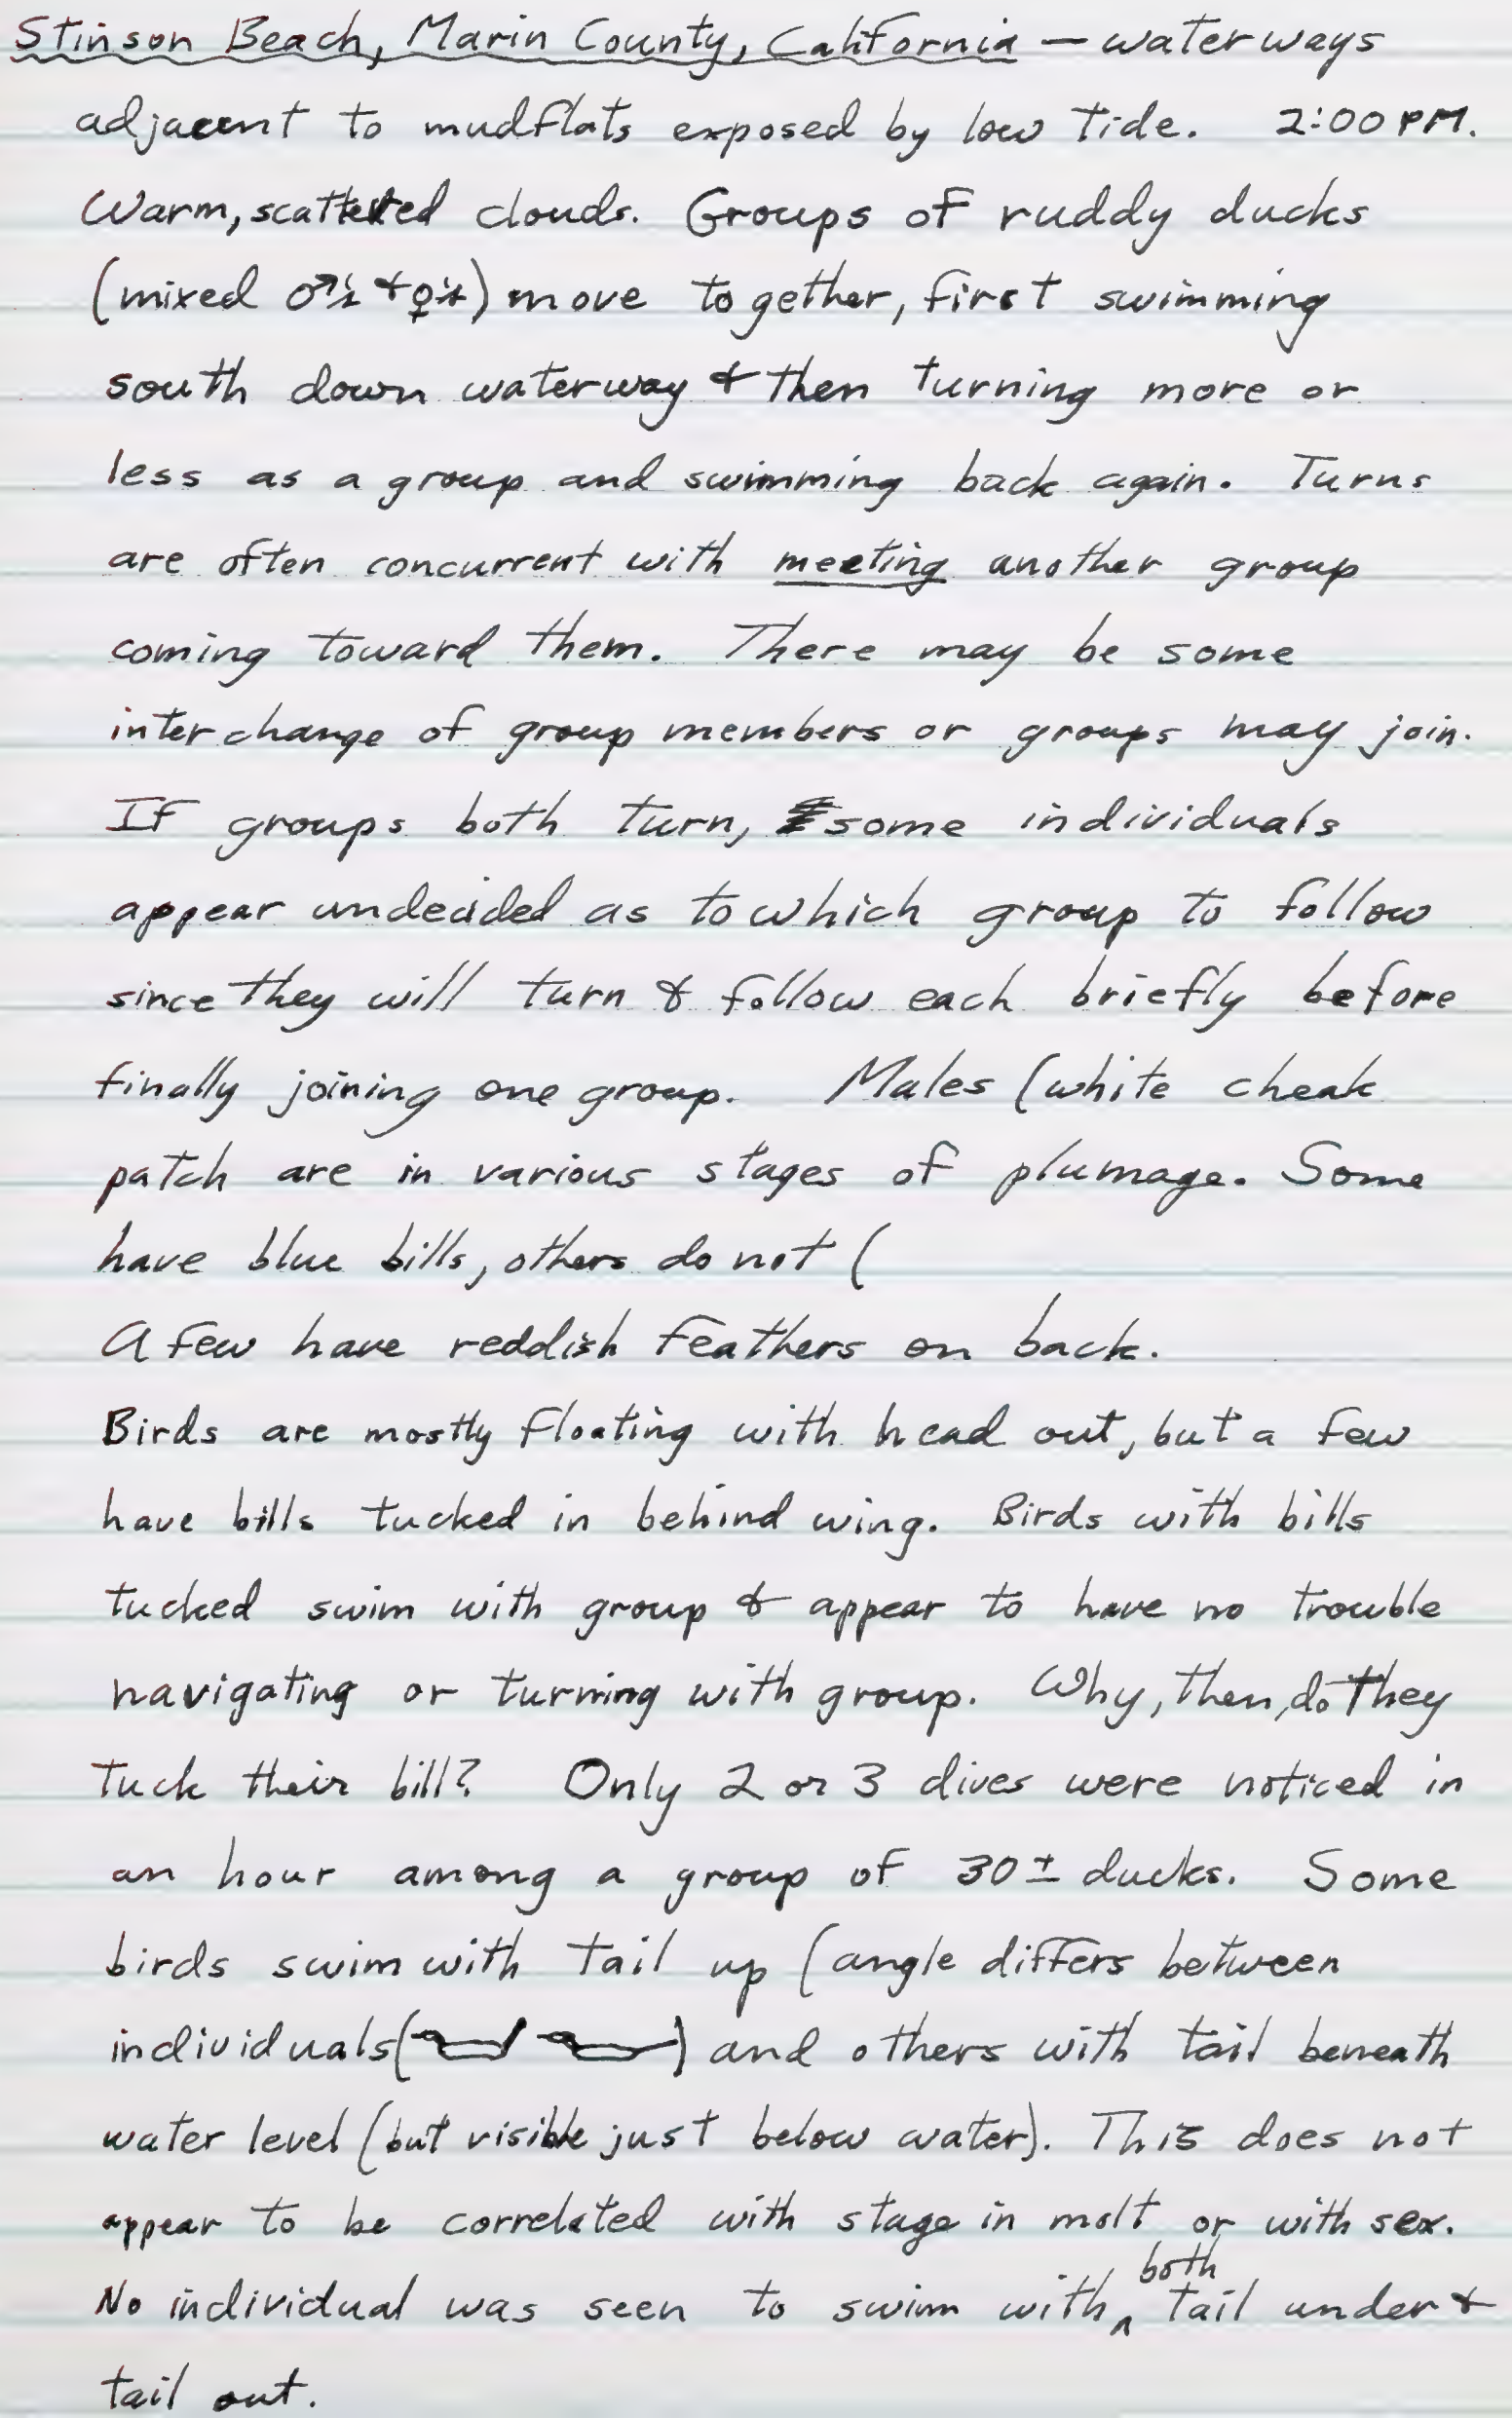 Stinson Beach, Marin County, California — waterways
adjacent to mudflats exposed by low tide. 2:00 PM.
Warm, scattered clouds. Groups of ruddy ducks
(mixed ♂'s + ♀'s) move together, first swimming
south down waterway & then turning more or
less as a group and swimming back again. Turns
are often concurrent with meeting another group
coming toward them. There may be some
interchange of group members or groups may join.
If groups both turn, some individuals
appear undecided as to which group to follow
since they will turn & follow each briefly before
finally joining one group. Males (white cheak
patch are in various stages of plumage. Some
have blue bills, others do not (
A few have reddish feathers on back.
Birds are mostly floating with head out, but a few
have bills tucked in behind wing. Birds with bills
tucked swim with group & appear to have no trouble
navigating or turning with group. Why, then, do they
tuck their bill? Only 2 or 3 dives were noticed in
an hour among a group of 30± ducks. Some
birds swim with tail up (angle differs between
individuals( ) and others with tail beneath
water level (but visible just below water). This does not
appear to be correlated with stage in molt or with sex.
No individual was seen to swim with both tail under &
tail out.